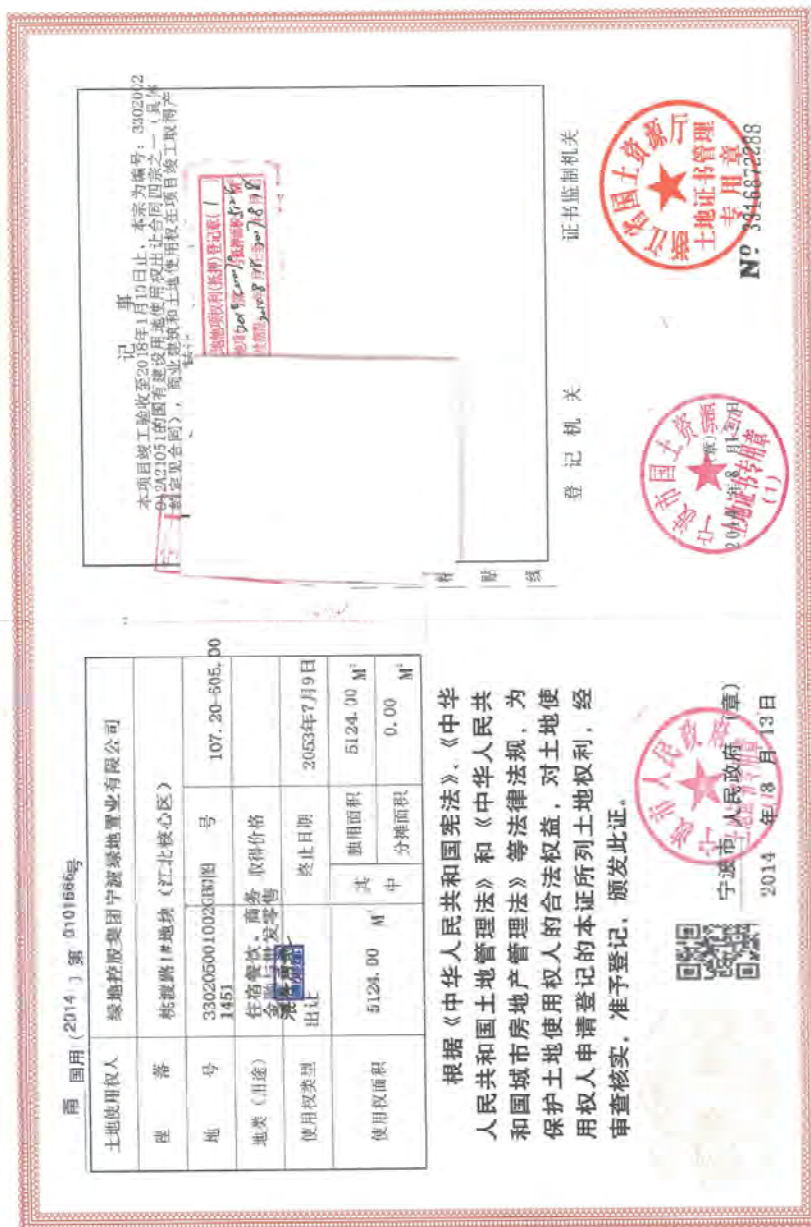 甬 国用（2014）第 0101566号
土地使用权人 绿地控股集团宁波绿地置业有限公司
座 落 桃渡路1#地块（江北核心区）
地 号 330205001002GB 图 号 107.20-605.00
1451
地类（用途） 住宿餐饮、商务 取得价格
使用权类型 出让 终止日期 2053年7月9日
使用权面积 5124.00 M² 其中 独用面积 5124.00 M²
分摊面积 0.00 M²
根据《中华人民共和国宪法》、《中华
人民共和国土地管理法》和《中华人民共
和国城市房地产管理法》等法律法规，为
保护土地使用权人的合法权益，对土地使
用权人申请登记的本证所列土地权利，经
审查核实，准予登记，颁发此证。
宁波市 人民政府（章）
2014 年 8 月 13 日
宁波市人民政府
记 事
本项目竣工验收至2018年1月10日止，本宗为编号：3302002
012A21051的国有建设用地使用权出让合同四宗之一（具体
约定见合同），商业建筑和土地使用权在项目竣工取得产
粘 贴 线
登 记 机 关
宁波市国土资源局
土地证书专用章
(1)
证书监制机关
浙江省国土资源厅
土地证书管理
专用章
Nº 3316872288